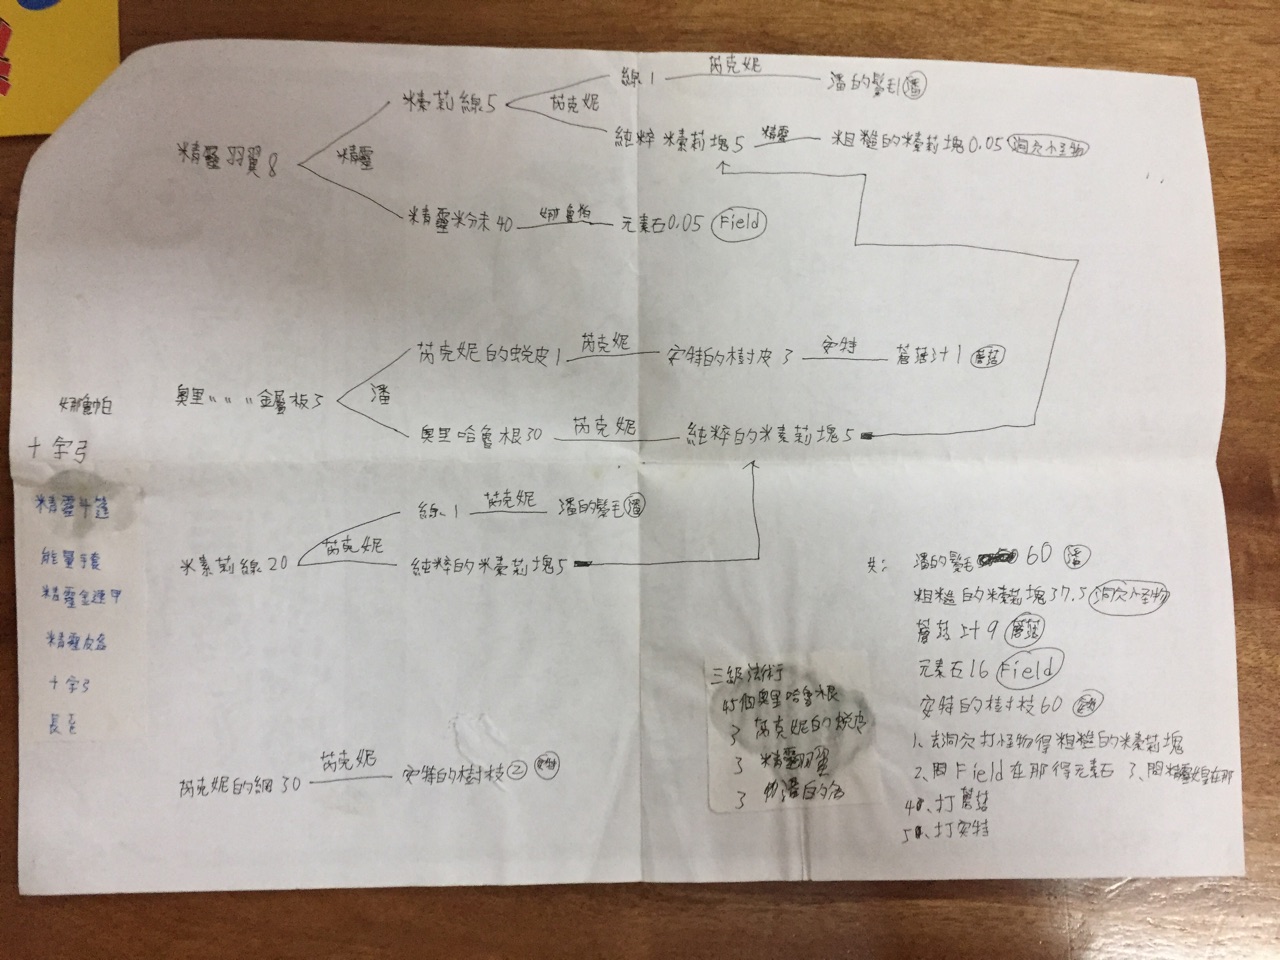 線1 芮克妮 潘的鬃毛1 潘
米索莉線5 芮克妮
純粹米索莉塊5 精靈 粗糙的米索莉塊0.05 洞穴怪物
精靈羽翼8 精靈
精靈粉末40 娜魯帕 元素石0.05 Field
芮克妮的蛻皮1 芮克妮 安特的樹皮3 安特 蘑菇汁1 蘑菇
奧里〃〃〃金屬板3 潘
奧里哈魯根30 芮克妮 純粹的米索莉塊5
線1 芮克妮 潘的鬃毛 潘
米索莉線20 芮克妮
純粹的米索莉塊5
芮克妮的網30 芮克妮 安特的樹枝② 安特
娜魯帕
十字弓
精靈斗篷
能量手套
精靈金鍊甲
精靈皮盔
十字弓
長
三級法術
45個奧里哈魯根
3 芮克妮的蛻皮
3 精靈羽翼
3 潘的
共: 潘的鬃毛 60 潘
粗糙的米索莉塊37.5 洞穴怪物
蘑菇汁9 蘑菇
元素石16 Field
安特的樹枝60 安特
1、去洞穴打怪物得粗糙的米索莉塊
2、問Field在那得元素石 3、問精靈女皇在那
4、打蘑菇
5、打安特